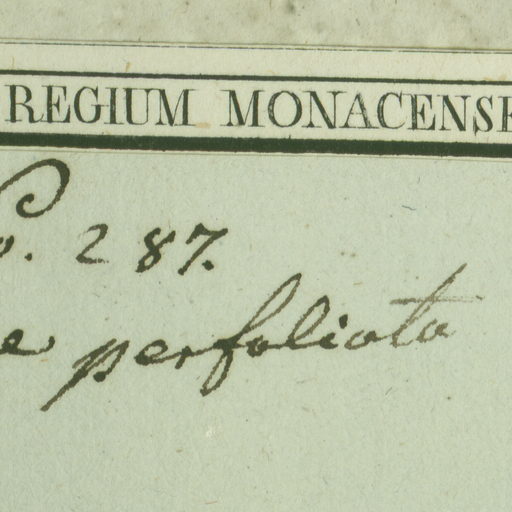 REGIUM MONACENSE
o. 287.
e perfoliata